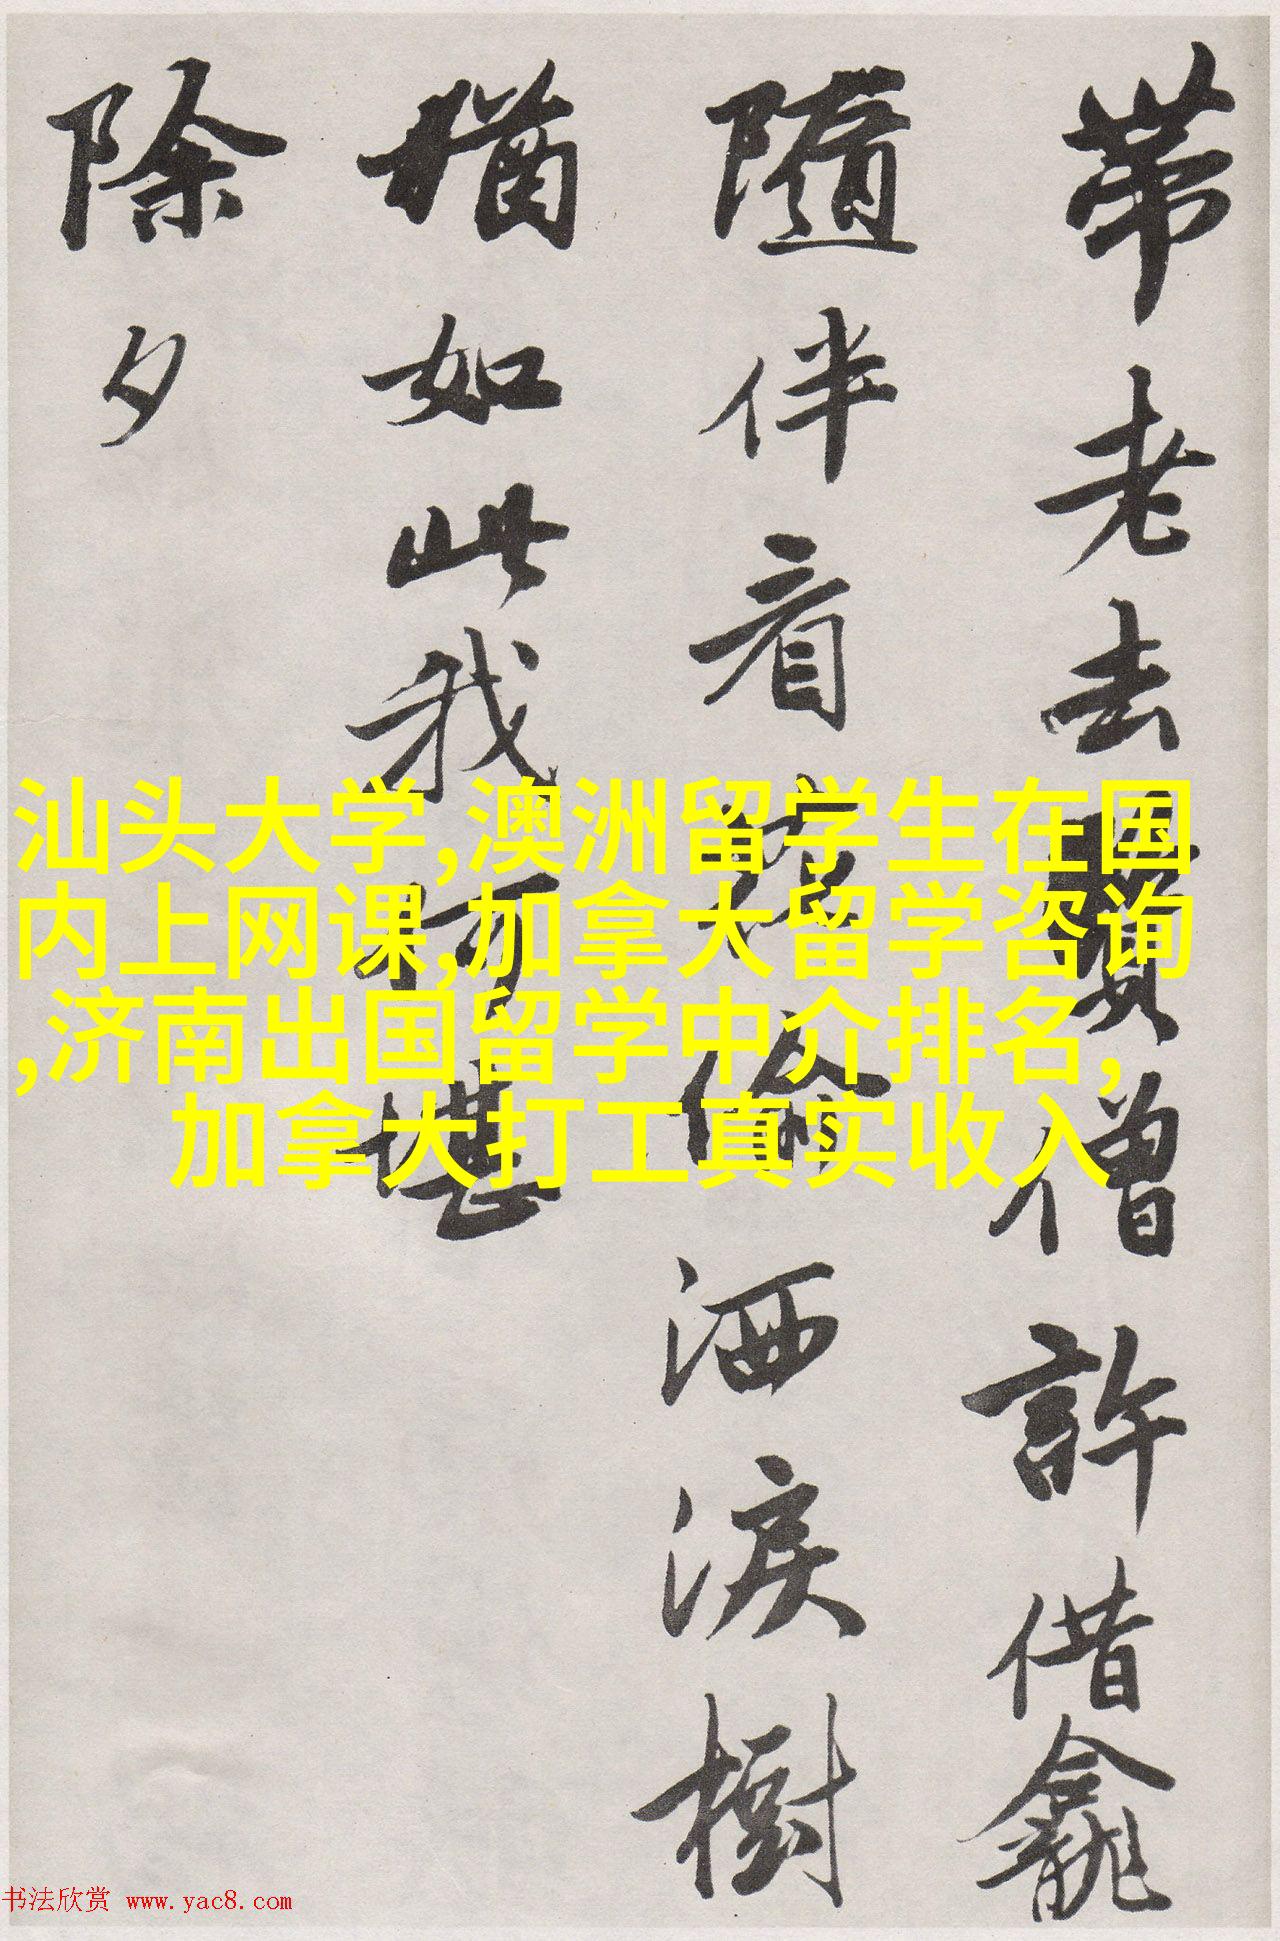 帶老去僧許借龕
隨伴看偷洒淚樹
猶如此我何堪
除夕
汕头大学,澳洲留学生在国
内上网课,加拿大留学咨询
,济南出国留学中介排名,
加拿大打工真实收入
书法欣赏 www.yac8.com